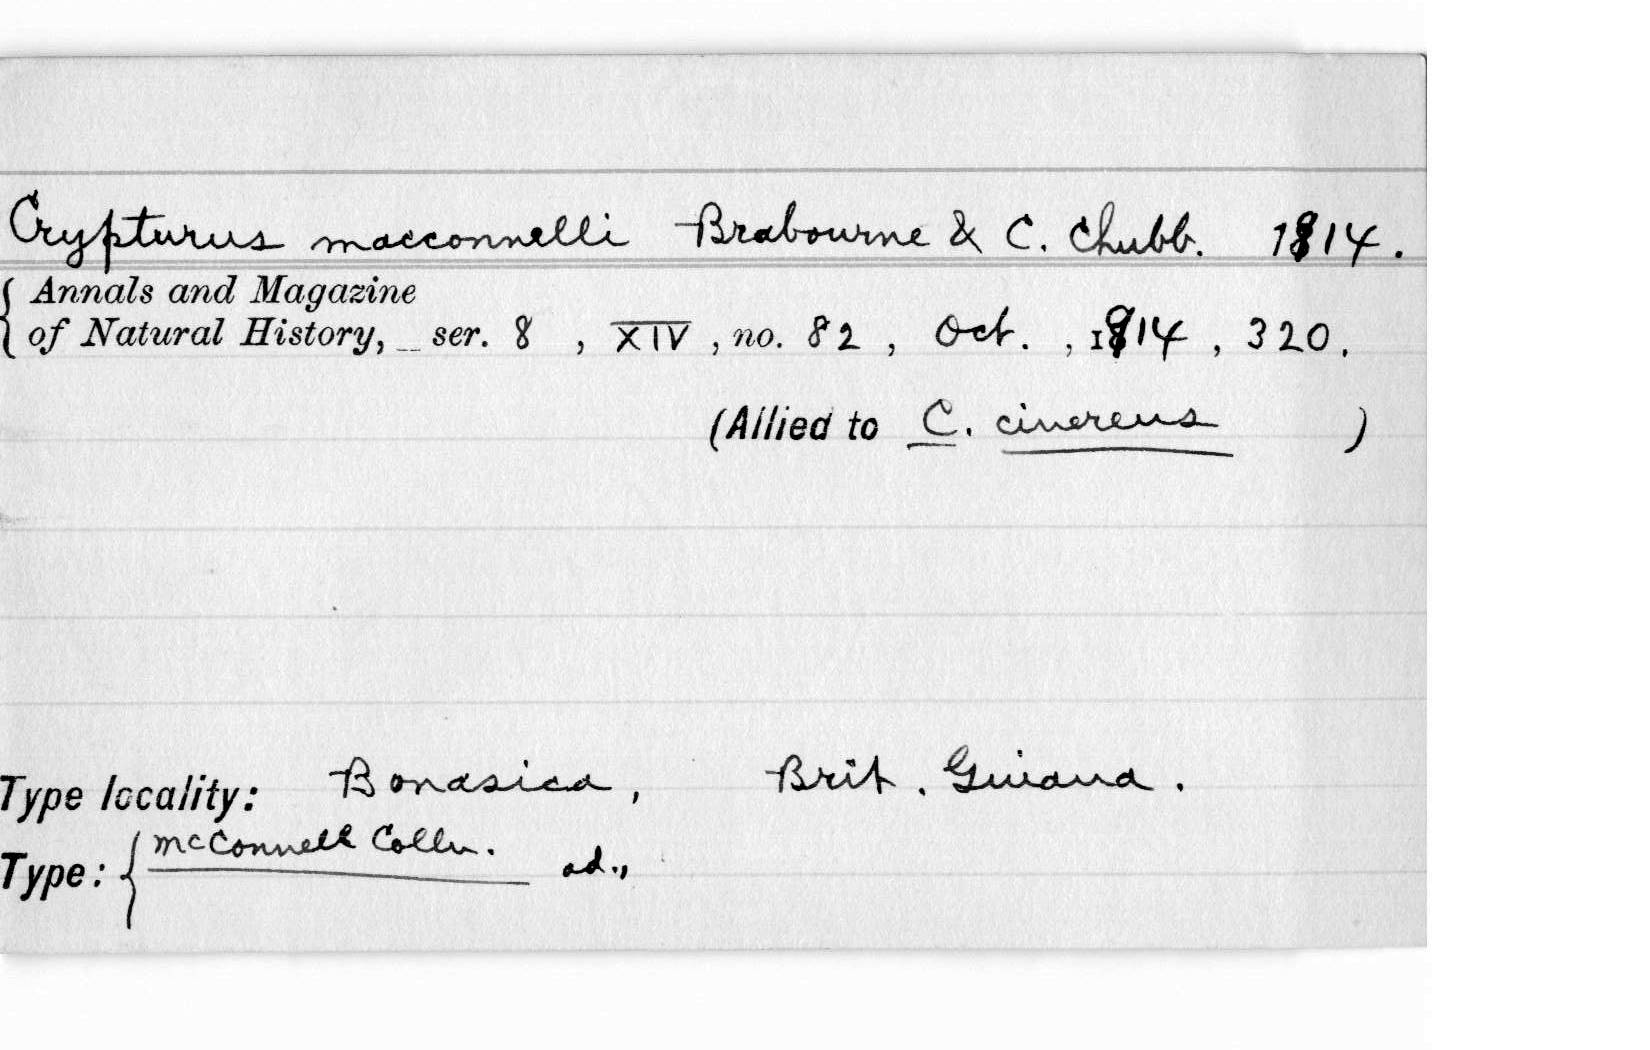 Crypturus macconnelli Brabourne & C. Chubb. 1914.
Annals and Magazine
of Natural History, ser. 8, XIV, no. 82, Oct., 1914, 320.
(Allied to C. cinereus )
Type locality: Bonasica, Brit. Guiana.
Type: { McConnell Colln. ad.,